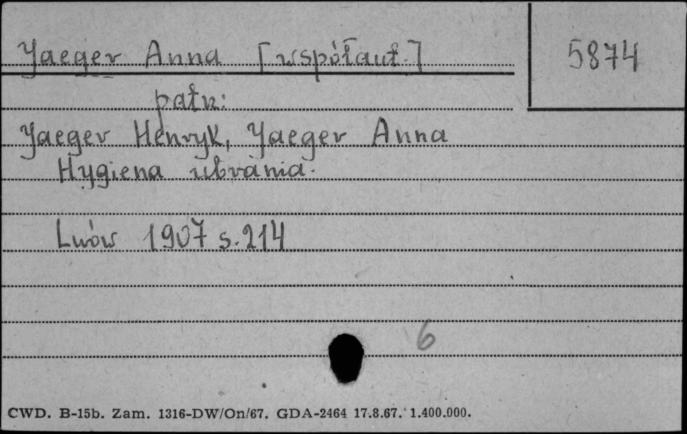 Jaeger Anna [współaut.]
5874
patrz:
Jaeger Henryk, Jaeger Anna
Hygiena ubrania.
Lwów 1907 s. 214
6
CWD. B-15b. Zam. 1316-DW/On/67. GDA-2464 17.8.67. 1.400.000.